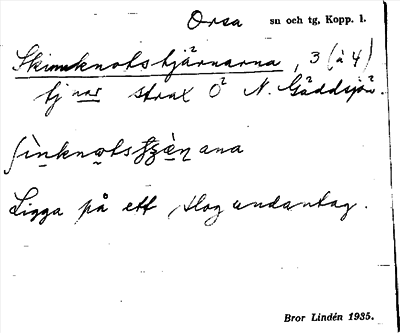 Orsa sn och tg, Kopp. l.
Skinnknotstjärnarna, 3 (à 4)
tjnar strax O N. Gäddsjön.
Ligga på ett skogundantag.
Bror Lindén 1935.